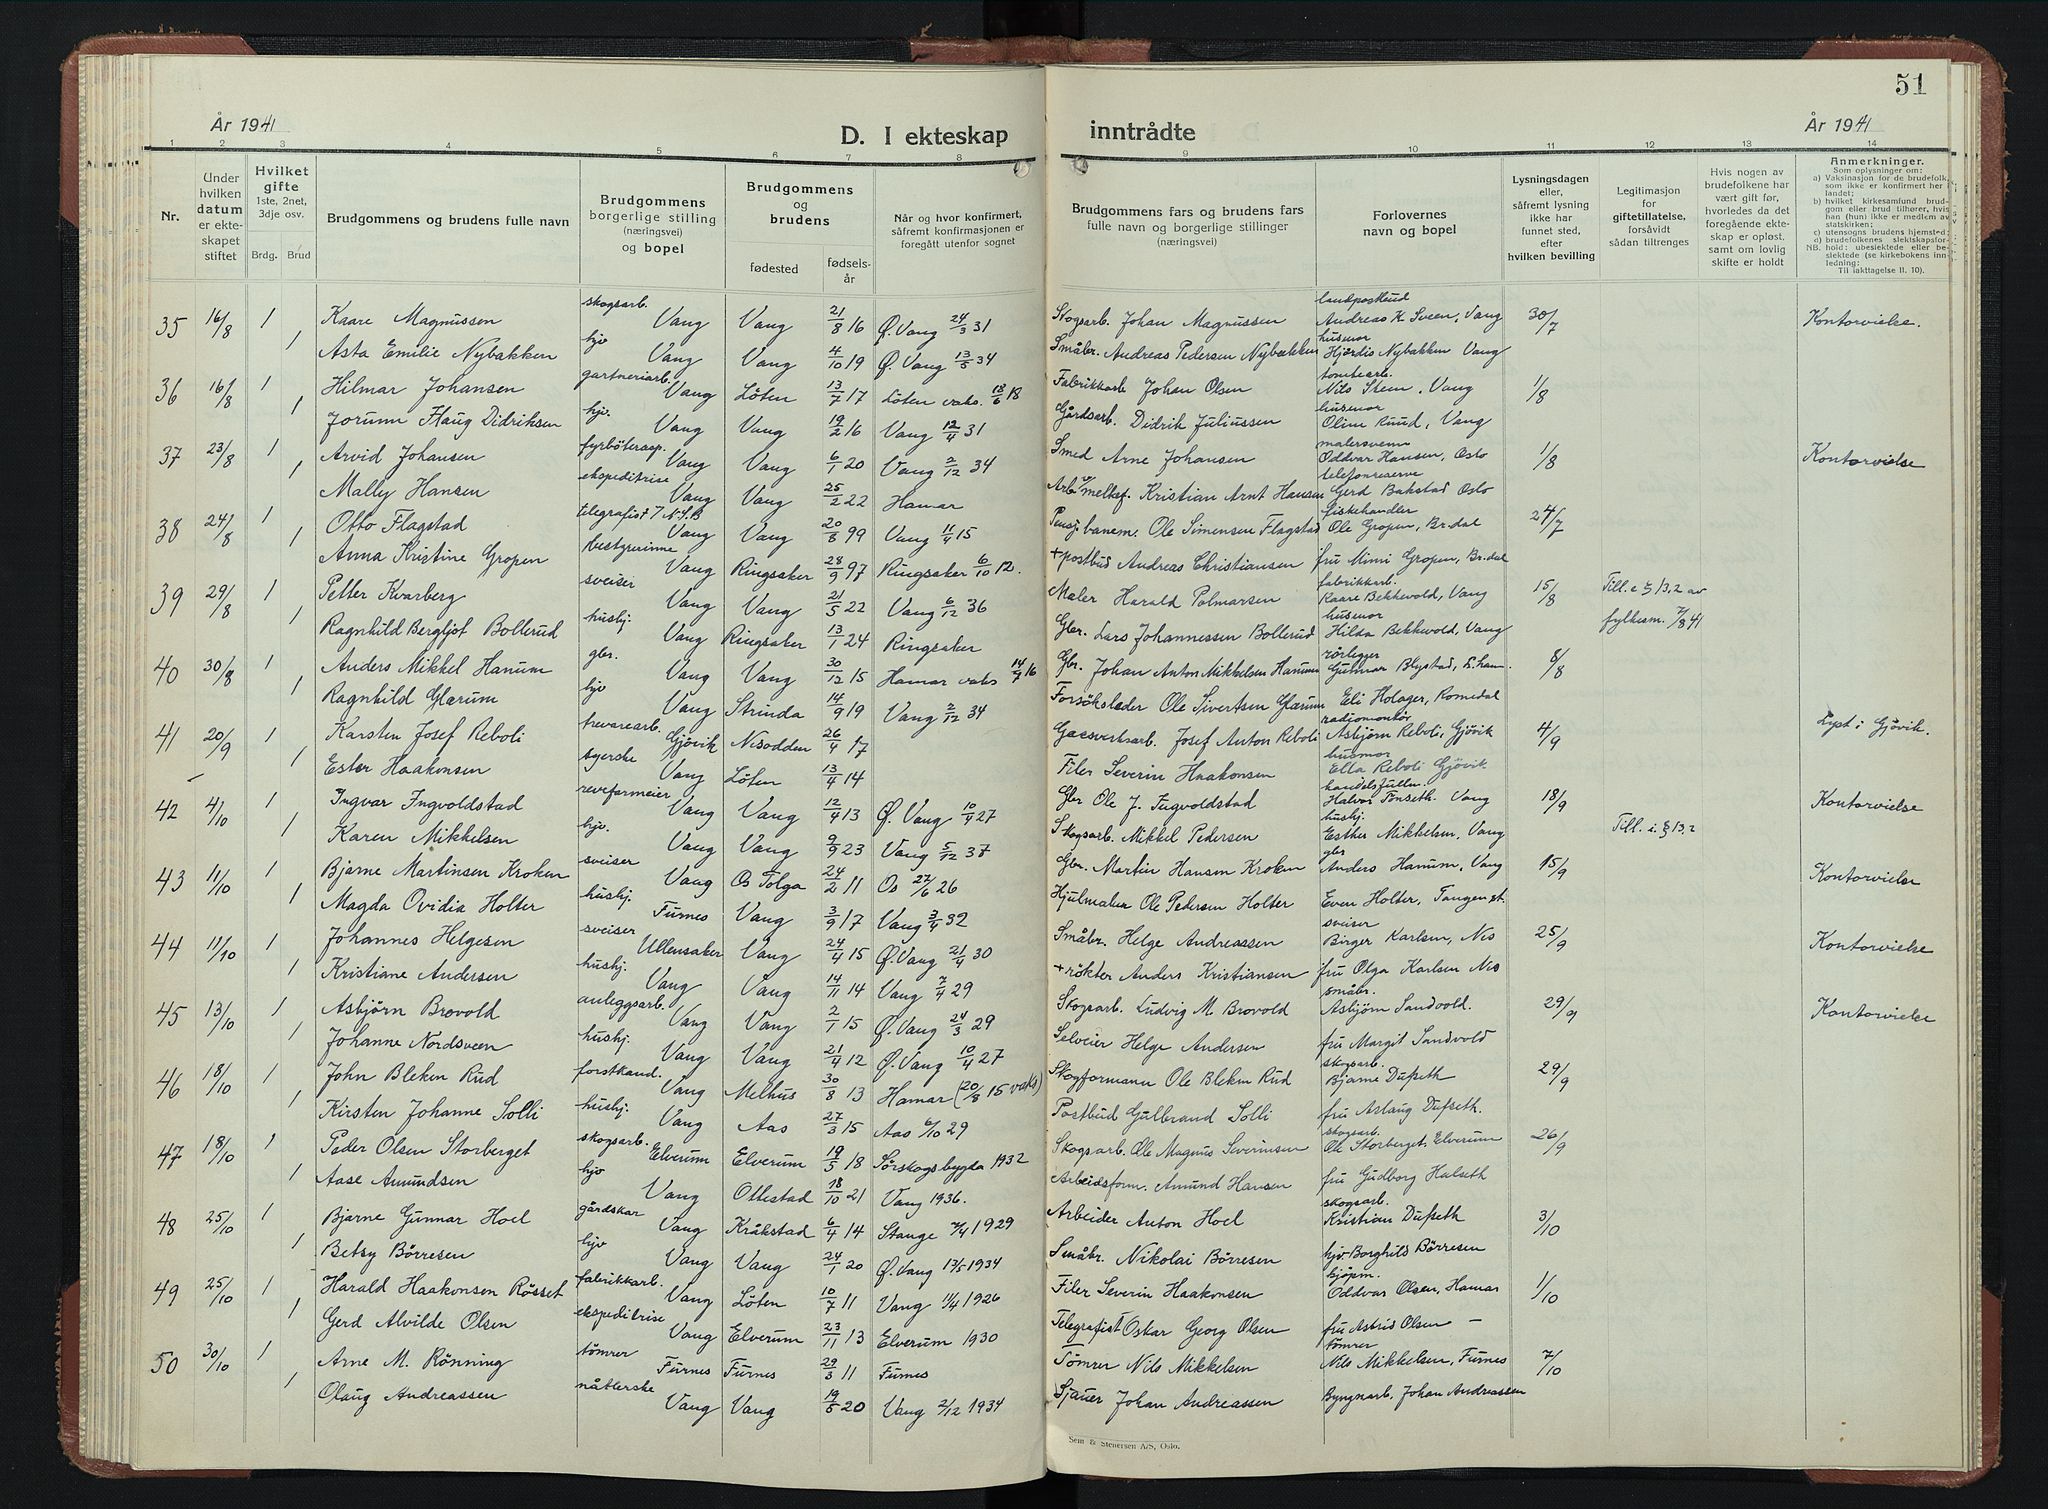 51
År 1941
D. I ekteskap
inntrådte
År 1941
1 2 3 4 5 6 7 8 9 10 11 12 13 14
Nr.
Under hvilken datum er ekteskapet stiftet
Hvilket gifte 1ste, 2net, 3dje osv.
Brdg. Brud
Brudgommens og brudens fulle navn
Brudgommens borgerlige stilling (næringsvei) og bopel
Brudgommens og brudens
fødested
fødselsår
Når og hvor konfirmert, såfremt konfirmasjonen er foregått utenfor sognet
Brudgommens fars og brudens fars fulle navn og borgerlige stillinger (næringsvei)
Forlovernes navn og bopel
Lysningsdagen eller, såfremt lysning ikke har funnet sted, efter hvilken bevilling
Legitimasjon for giftetillatelse, forsåvidt sådan tiltrenges
Hvis nogen av brudefolkene har vært gift før, hvorledes da det foregående ekteskap er opløst, samt om lovlig skifte er holdt
Anmerkninger.
Som oplysning om:
a) Vaksinasjon for de brudefolk, som ikke er konfirmert her i landet;
b) hvilket kirkesamfund brudgom eller brud tilhører, hvis han (hun) ikke er medlem av statskirken;
c) utensogns brudens hjemsted;
d) brudefolkenes slektskapsforhold: ubeslektede eller beslektede (se kirkebokens innledning:
NB.
Til iakttagelse II. 10).
35 16/8 1 Kaare Magnussen skogsarb. Vang Vang 21/8 16 Ø. Vang 24/3 31 Skogsarb. Johan Magnussen landpostbud Andreas K. Sveen, Vang 30/7 Kontorvielse.
1 Asta Emilie Nybakken hjv Vang Vang 4/10 19 Ø. Vang 13/5 34 Småbr. Andreas Pedersen Nybakken husmor Hjørdis Nybakken Vang
36 16/8 1 Hilmar Johansen gartneriarb. Vang Løten 13/7 17 Løten vaks. 18/6 18 Fabrikkarb Johan Olsen tomtearb. Nils Stem, Vang 1/8
1 Jorunn Haug Didriksen hjv. Vang Vang 19/2 16 Vang 12/4 31 Gårdsarb. Didrik Juliussen husmor Oline Ruud, Vang
37 23/8 1 Arvid Johansen fyrbøterasp. Vang Vang 6/1 20 Vang 2/12 34 Smed Arne Johansen malersvenn Oddvar Hansen, Oslo 1/8 Kontorvielse
1 Mally Hansen ekspeditrise Vang Vang 25/2 22 Hamar Arb. v/ melkef. Kristian Arnt Hansen telefonreserve Gerd Bakstad Oslo
38 24/8 1 Otto Flagstad telegrafist N.S.B Vang Vang 20/8 99 Vang 11/4 15 Pensj. banem. Ole Simensen Flagstad fiskehandler Ole Gropen, Br.dal 24/7
1 Anna Kristine Gropen bestyrerinne Vang Ringsaker 28/9 97 Ringsaker 6/10 12. + postbud Andreas Christiansen fru Mimi Gropen, Br.dal
39 29/8 1 Petter Kvarberg sveiser Vang Vang 21/5 22 Vang 6/12 36 Maler Harald Polmarsen fabrikkarb. Kaare Bekkevold, Vang 15/8 Till. e § 13,2 av
1 Ragnhild Bergljot Bollerud hushj. Vang Ringsaker 13/1 24 Ringsaker Gbr. Lars Johannessen Bollerud husmor Hilda Bekkevold, Vang fylkesm. 7/8 41
40 30/8 1 Anders Mikkel Hanum gbr. Vang Vang 30/12 15 Hamar vaks 14/7 16 Gbr. Johan Anton Mikkelsen Hanum rørlegger Gutmar Blystad, L.ham. 8/8
1 Ragnhild Glærum hjv Vang Strinda 14/9 19 Vang 2/12 34 Forsøksleder Ole Sivertsen Glærum Eli Holager, Romedal
41 20/9 1 Karsten Josef Reboli trevarearb. Gjøvik Nisodden 26/4 17 Gassverksarb. Josef Anton Reboli radiomontør Asbjørn Reboli, Gjøvik 4/9 Lyst i Gjøvik.
1 Ester Haakonsen syerske Vang Løten 13/4 14 Filer Severin Haakonsen husmor Ella Reboli Gjøvik
42 4/10 1 Ingvar Ingvoldstad reveformeier Vang Vang 12/4 13 Ø. Vang 10/4 27 Gbr Ole J. Ingvoldstad handelsfullm. Halvor Tønseth. Vang 18/9 Kontorvielse
1 Karen Mikkelsen hjv. Vang Vang 9/9 23 Vang 5/12 37 Skogsarb. Mikkel Pedersen hushj. Esther Mikkelsen, Vang Till. i. § 13,2
43 11/10 1 Bjarne Martinsen Kroken sveiser Vang Os Tolga 24/2 11 Os 27/6 26 Gbr. Martin Hansen Kroken gbr Anders Hanum, Vang 15/9 Kontorvielse
1 Magda Ovidia Holter hushj. Furnes Vang 3/9 17 Vang 3/4 32 Hjulmaker Ole Pedersen Holter Even Holter, Tangen st.
44 11/10 1 Johannes Helgesen sveiser Ullensaker Vang 24/4 15 Ø. Vang 21/4 30 Småbr. Helge Andreassen sveiser Birger Karlsen, Nes 25/9 Kontorvielse
1 Kristiane Andersen hushj. Vang Vang 14/11 14 Vang 7/4 29 + røkter Anders Kristiansen fru Olga Karlsen Nes
45 13/10 1 Asbjørn Brovold anleggsarb. Vang Vang 2/1 15 Ø. Vang 24/3 29 Skogsarb. Ludvig M. Brovold småbr. Asbjørn Sandvold. 29/9 Kontorvielse
1 Johanne Nordsveen hushj. Vang Vang 21/4 12 Ø. Vang 10/4 27 Selveier Helge Andersen fru Margit Sandvold
46 18/10 1 John Bleken Rud forstkand. Vang Melhus 30/8 13 Hamar (20/8 15 vaks) Skogformann Ole Bleken Rud skogsarb. Bjarne Dufseth 29/9
1 Kirsten Johanne Solli hushj. Vang Aas 27/3 15 Aas 6/10 29 Postbud Gulbrand Solli fru Aslaug Dufseth.
47 18/10 1 Peder Olsen Storberget skogsarb. Elverum Elverum 19/5 18 Sørskogsbygda 1932 Skogsarb. Ole Magnus Severinsen skogsarb. Ole Storberget, Elverum 26/9
1 Aase Amundsen hjv Vang Ottestad 18/10 21 Vang 1936. Arbeidsform. Amund Hansen fru Gudborg Halseth
48 25/10 1 Bjarne Gunnar Hoel gårdskar Vang Kråkstad 6/4 14 Stange 7/4 1929 Arbeider Anton Hoel skogsarb. Kristian Dufseth 3/10
1 Betsy Børresen hjv Vang Vang 24/1 20 Ø. Vang 13/5 1934 Småbr. Nikolai Børresen hjv. Borghild Børresen
49 25/10 1 Harald Haakonsen Røsset fabrikkarb. Vang Løten 10/7 11 Vang 11/4 1926 Filer Severin Haakonsen kjøpm. Oddvar Olsen, Hamar 1/10
1 Gerd Alvilde Olsen ekspeditrise Vang Elverum 23/11 13 Elverum 1930 Telegrafist Oskar Georg Olsen fru Astrid Olsen —
50 30/10 1 Arne M. Rønning tømrer Furnes Furnes 29/3 11 Furnes Tømrer Nils Mikkelsen tømrer Nils Mikkelsen, Furnes 7/10
1 Olaug Andreassen nåtlerske Vang Vang 19/5 20 Vang 2/12 1934 Sjauer Johan Andreassen Bygnarb. Johan Andreassen
Sem & Stenersen A/S, Oslo.